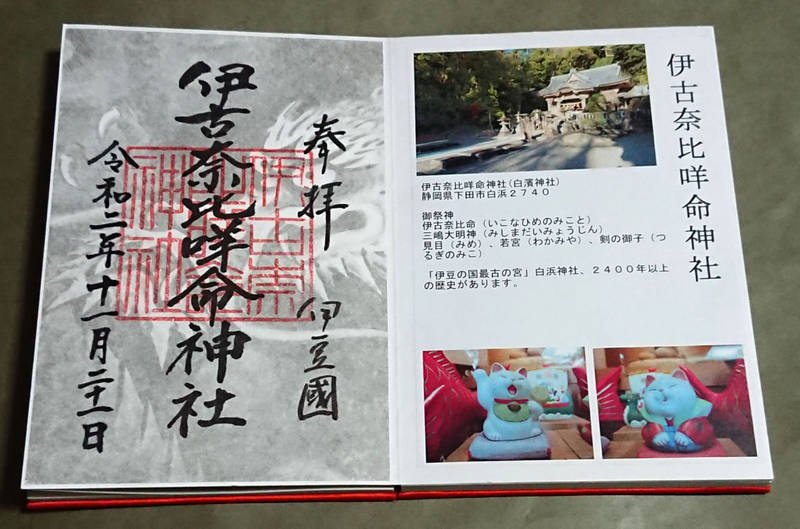 奉拝
伊豆國
伊古奈比咩命神社
令和二年十一月二十一日
伊古奈比咩命神社
伊古奈比咩命神社(白濱神社)
静岡県下田市白浜2740
御祭神
伊古奈比命(いこなひめのみこと)
三嶋大明神(みしまだいみょうじん)
見目(みめ)、若宮(わかみや)、剣の御子(つ
るぎのみこ)
「伊豆の国最古の宮」白浜神社、2400年以上
の歴史があります。